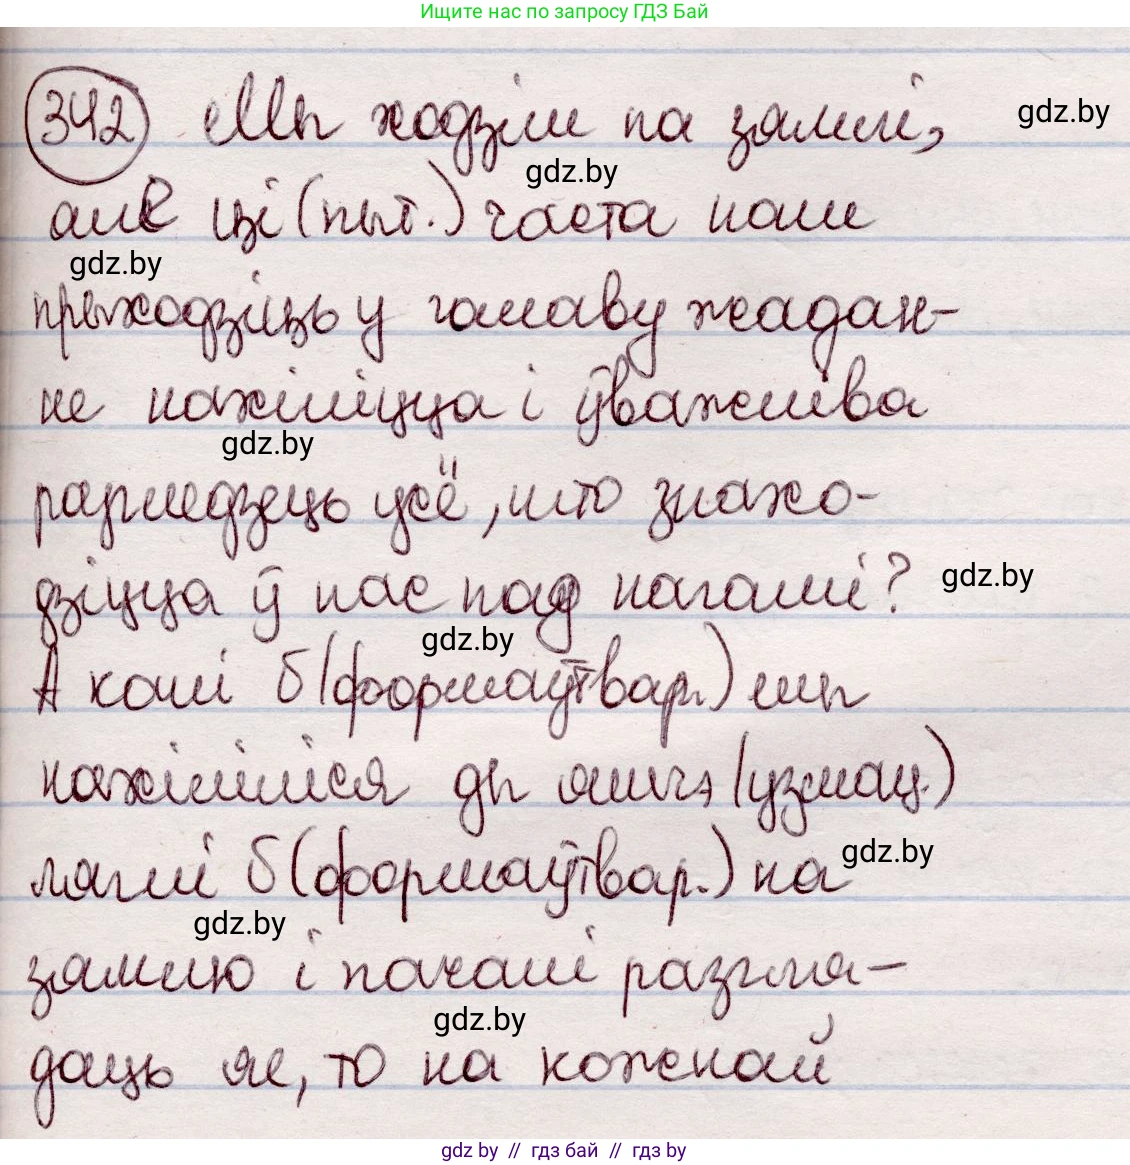 Ищите нас по запросу ГДЗ Бай
342 Мы ходзім па зямлі,
gdz.by
gdz.by
але ці (пыт.) часта нам
gdz.by
прыходзіць у галаву жадан-
не нахіліцца і ўважліва
gdz.by
разгледзець усё, што знахо-
дзіцца ў нас пад нагамі?
gdz.by
gdz.by
А калі б (формаўтвар.) мы
нахіліліся ды яшчэ (узмац.)
ляглі б (формаўтвар.) на
gdz.by
gdz.by
зямлю і пачалі разгля-
gdz.by
даць яе, то на кожнай
gdz by // гдз бай // гдз by